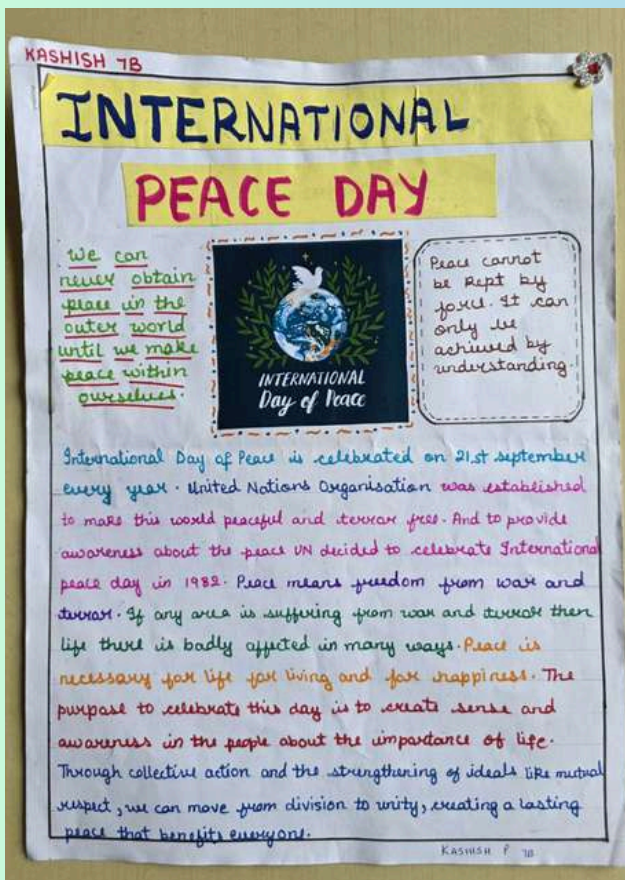 KASHISH 7B
INTERNATIONAL
PEACE DAY
We can
never obtain
peace in the
outer world
until we make
peace within
ourselves.
INTERNATIONAL
Day of Peace
Peace cannot
be kept by
force. It can
only be
achieved by
understanding.
International Day of Peace is celebrated on 21st september
every year. United Nations Organisation was established
to make this world peaceful and terror free. And to provide
awareness about the peace UN decided to celebrate International
peace day in 1982. Peace means freedom from war and
terror. If any area is suffering from war and terror then
life there is badly affected in many ways. Peace is
necessary for life for living and for happiness. The
purpose to celebrate this day is to create sense and
awareness in the people about the importance of life.
Through collective action and the strengthening of ideals like mutual
respect, we can move from division to unity, creating a lasting
peace that benefits everyone.
KASHISH P 7B